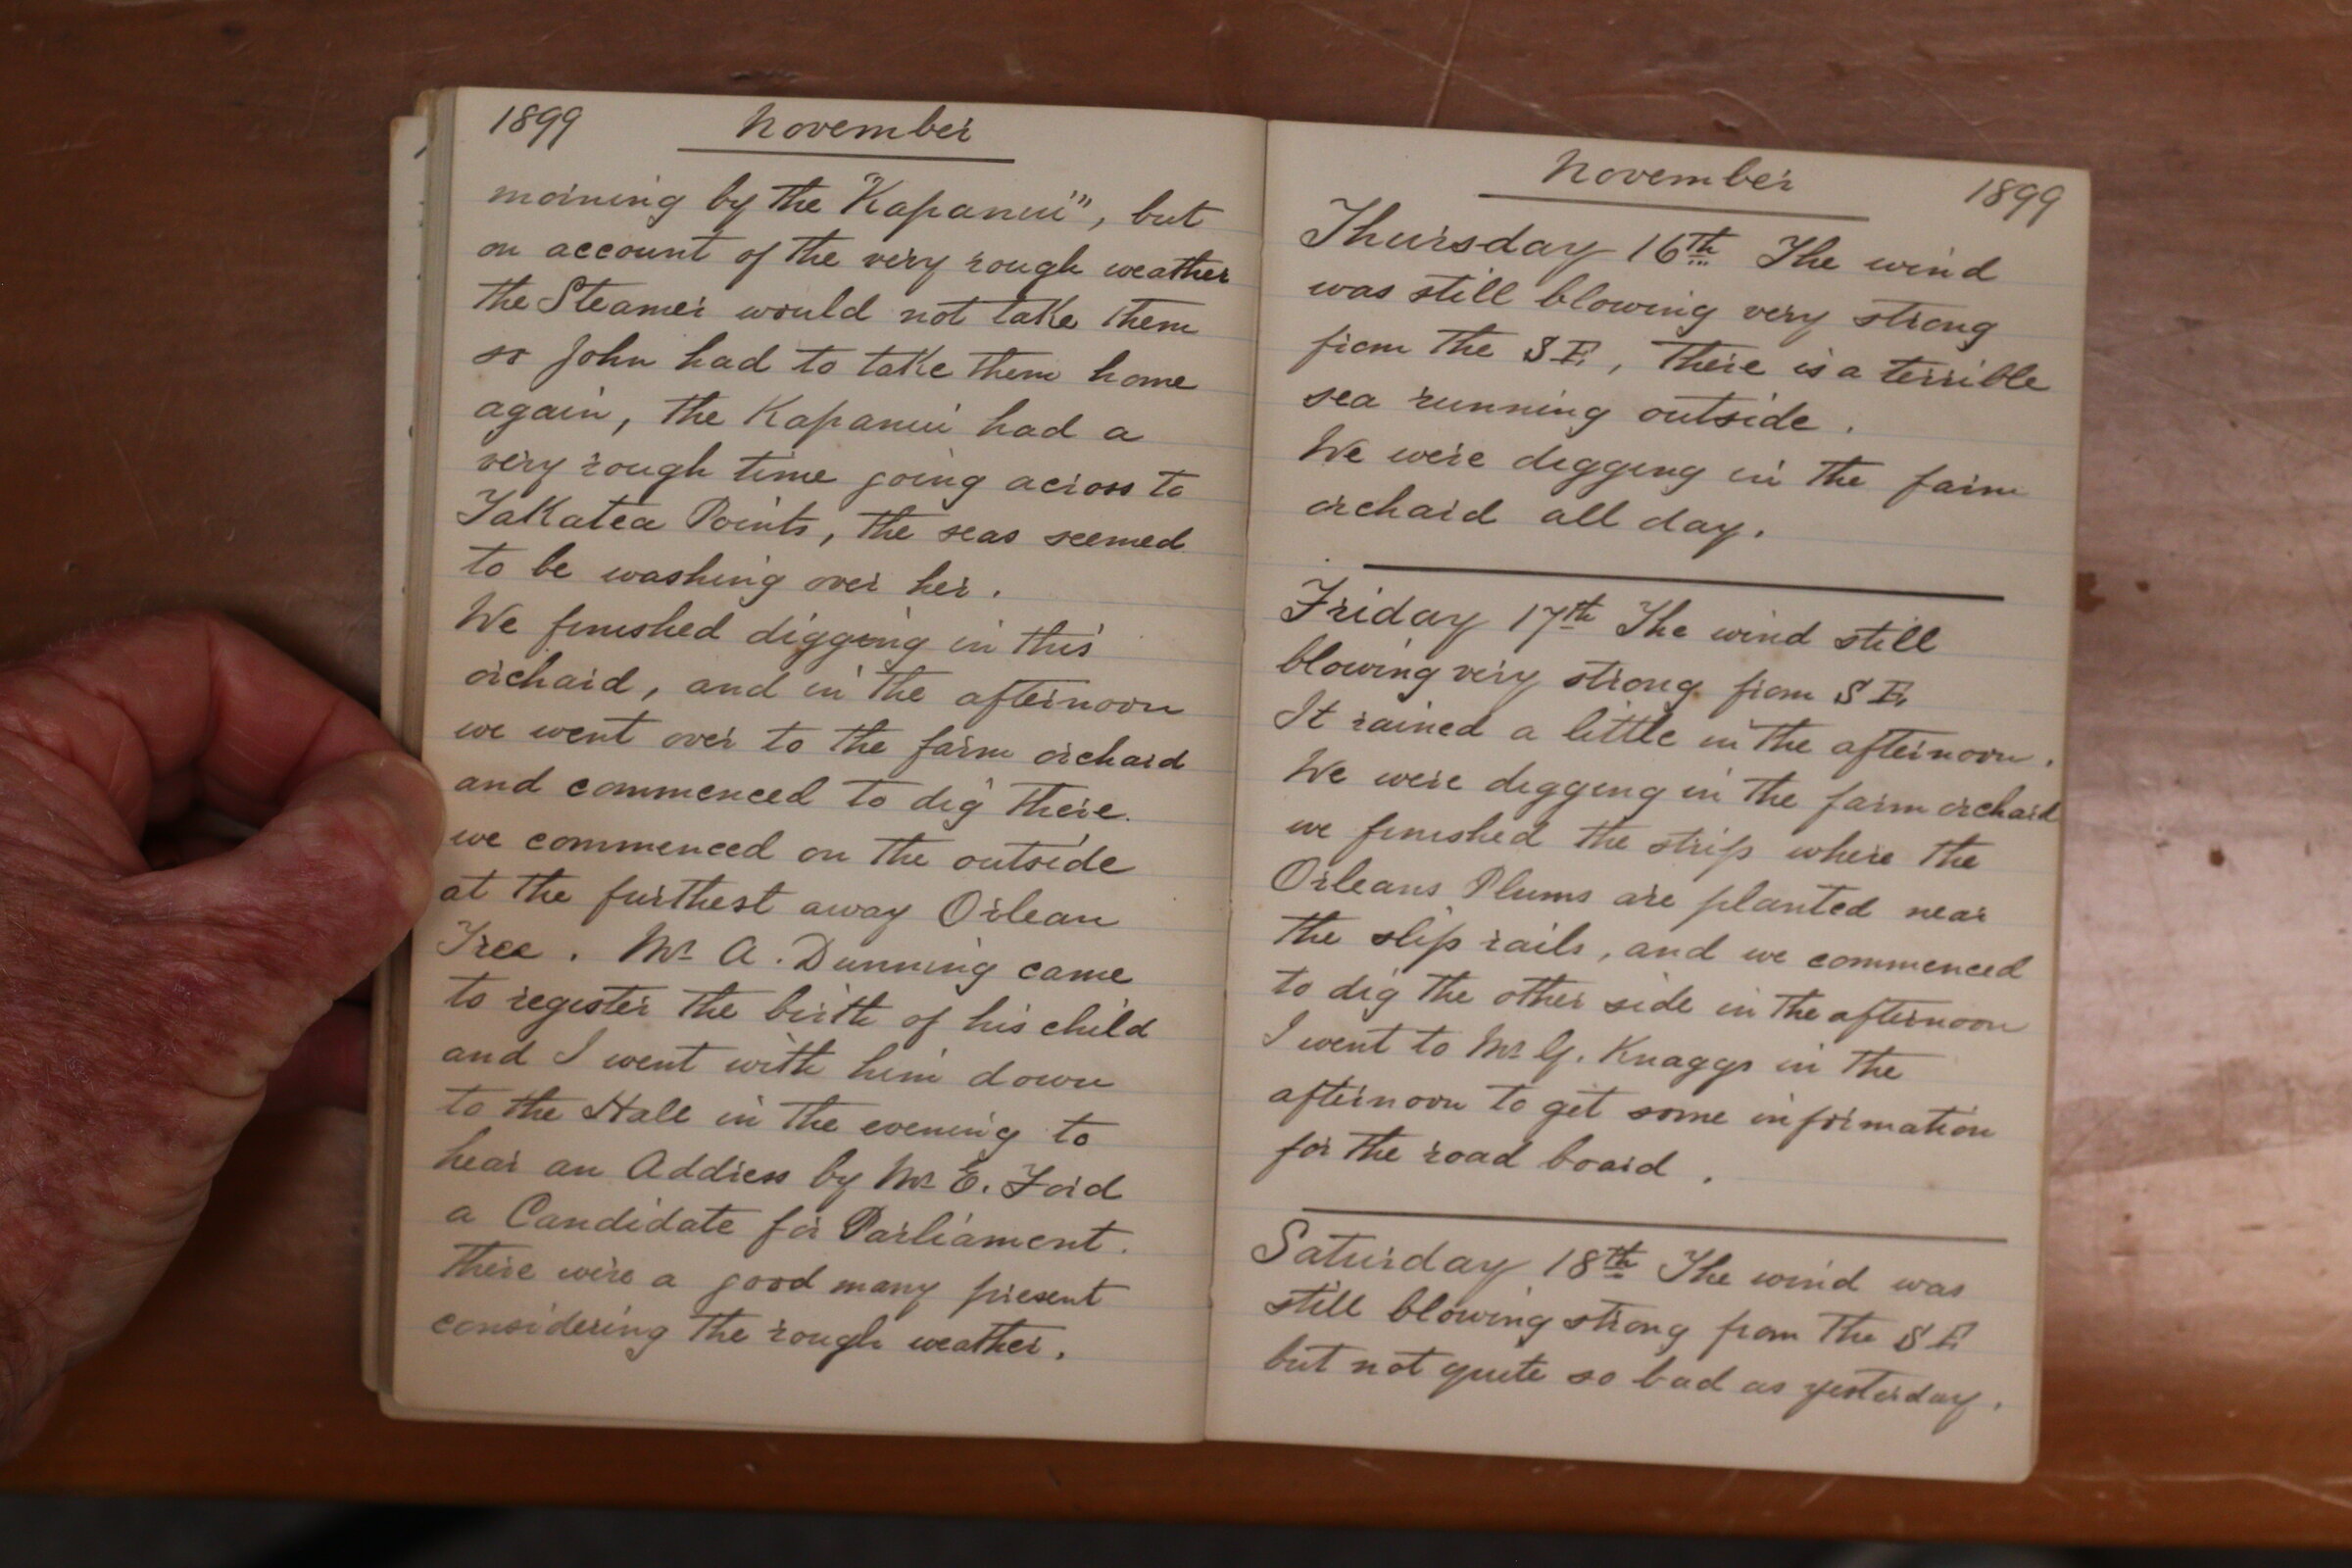 1899 November
morning by the "Kapanui", but
on account of the very rough weather
the Steamer would not take them
so John had to take them home
again, the Kapanui had a
very rough time going across to
Takatea Points, the seas seemed
to be washing over her.
We finished digging in this
orchard, and in the afternoon
we went over to the farm orchard
and commenced to dig there.
we commenced on the outside
at the furthest away Orlean
Tree. Mr A. Dunning came
to register the birth of his child
and I went with him down
to the Hall in the evening to
hear an Address by Mr E. Ford
a Candidate for Parliament.
There were a good many present
considering the rough weather.
November 1899
Thursday 16th The wind
was still blowing very strong
from the S E, there is a terrible
sea running outside.
We were digging in the farm
orchard all day.
Friday 17th The wind still
blowing very strong from S E.
It rained a little in the afternoon.
We were digging in the farm orchard
we finished the strip where the
Orleans Plums are planted near
the slip rails, and we commenced
to dig the other side in the afternoon
I went to Mr G. Knaggs in the
afternoon to get some information
for the road board.
Saturday 18th The wind was
still blowing strong from the S E
but not quite so bad as yesterday.